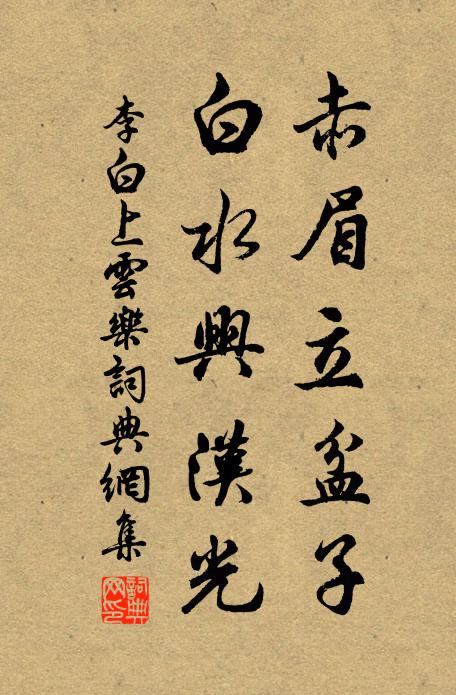 赤眉立盆子
白水興漢光
李白上雲樂詞典網集
詞典網印